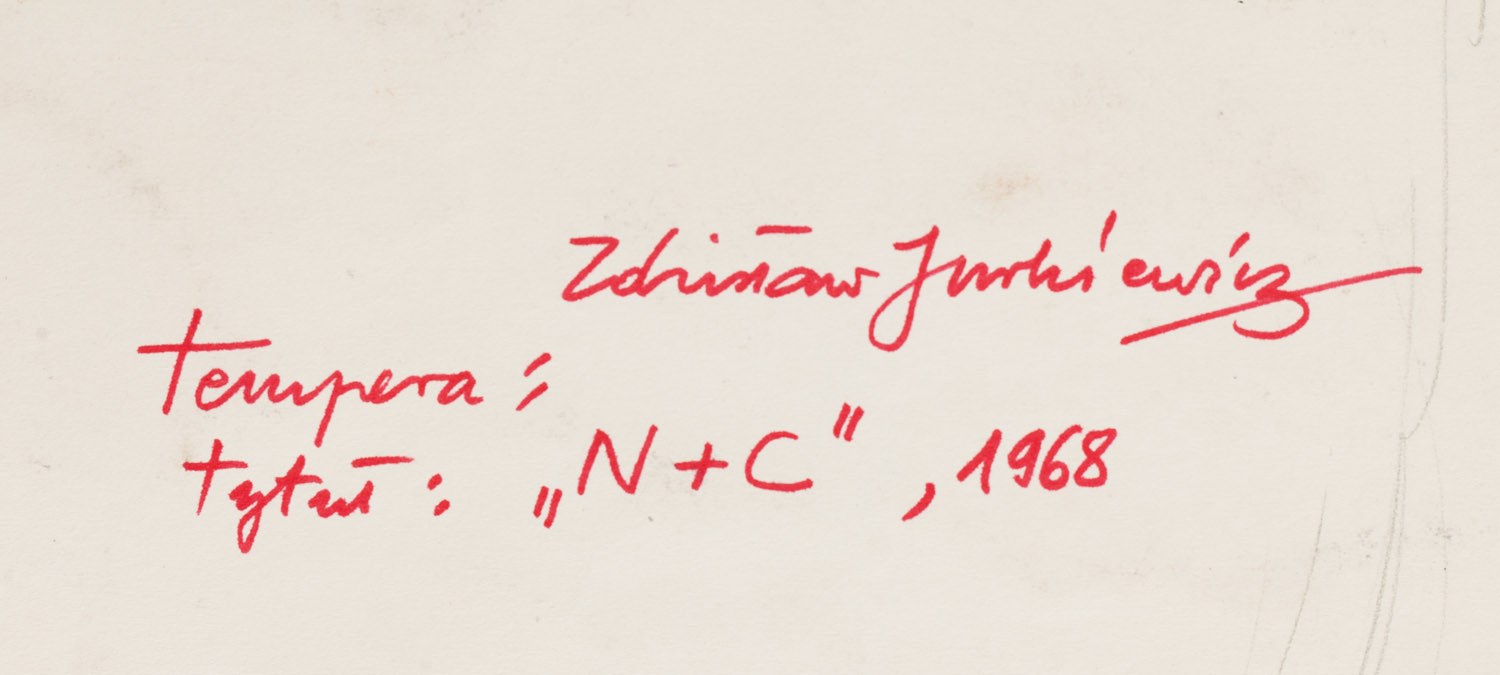 Zdzisław Jurkiewicz
Tempera :
tytuł : „N + C” , 1968